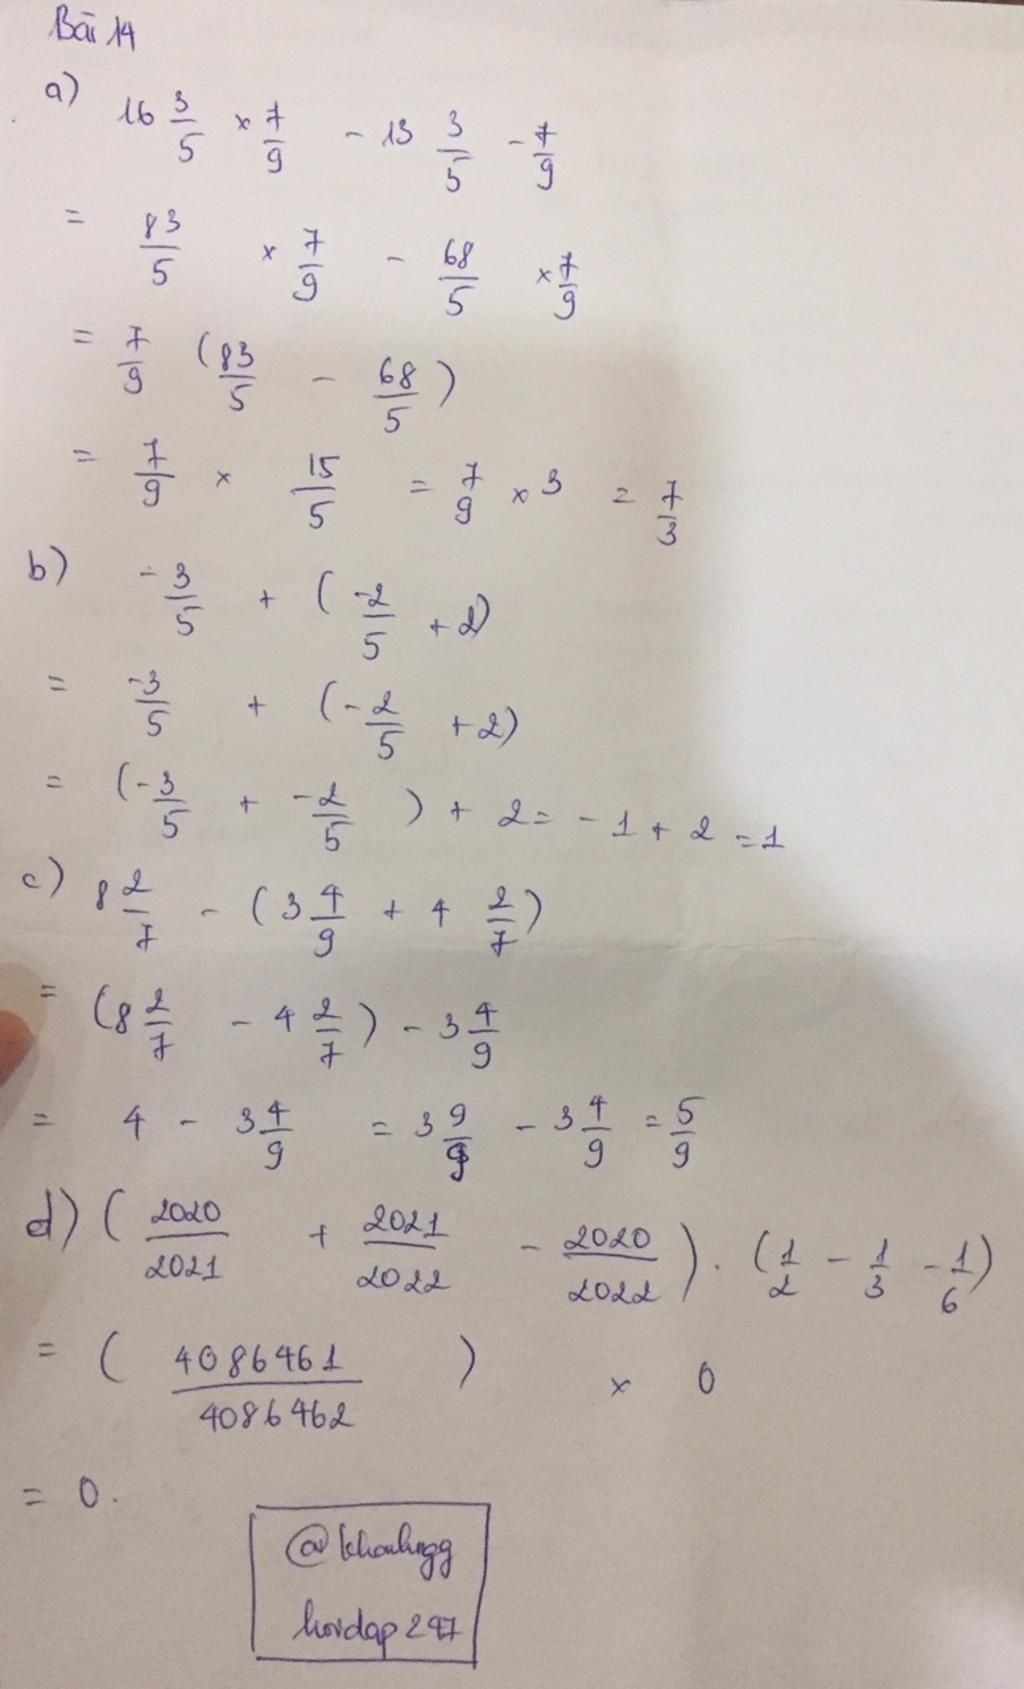 Bài 14
a) 16 3/5 × 7/9 - 13 3/5 - 7/9
= 83/5 × 7/9 - 68/5 × 7/9
= 7/9 (83/5 - 68/5)
= 7/9 × 15/5 = 7/9 × 3 = 7/3
b) -3/5 + (-2/5 + 2)
= -3/5 + (-2/5 + 2)
= (-3/5 + -2/5) + 2 = -1 + 2 = 1
c) 8 2/7 - (3 4/9 + 4 2/7)
= (8 2/7 - 4 2/7) - 3 4/9
= 4 - 3 4/9 = 3 9/9 - 3 4/9 = 5/9
d) (2020/2021 + 2021/2022 - 2020/2022) . (1/2 - 1/3 - 1/6)
= (4086461/4086462) × 0
= 0.
hoidap247